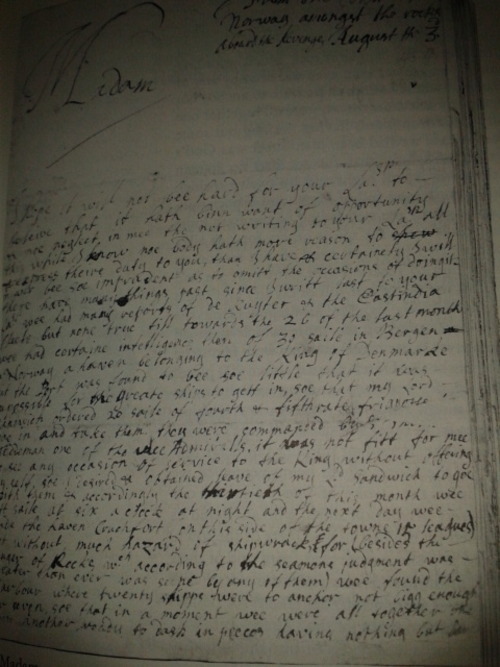 Norway amongst the rocks
aboard the Revenge August the 3
Madam
I hope it will not bee hard for your Lasp to
beleive that it hath binn want of oportunity
not neglect, in mee the not writing to your Lasp all
this while I know noe body hath more reason to
expresse theire duty to you, than I have & certainely I will
not bee soe impredent as to omitt the occasions of doing it
there have many things past since I writt last to your
wee had many reports of de Ruyter & the Eastindia
fleete but none true till towards the 26 of the last month
wee had certaine intelligence then of 30 saile in Bergen
Norway a haven belonging to the King of Denmarke
but the Port was found to bee soe little that it was
impossible for the greate ships to gett in, soe that my Lord
Sandwich ordered 20 saile of fourth & fifth rate friggotts
goe in and take them they were commanded by
one of the vice Admiralls, it was not fitt for mee
see any occasion of service to the King without offering
my self, soe I desired & obtained leave of my Ld Sandwich to goe
with them & accordingly the thirtieth of this month wee
sett saile at six a clock at night and the next day wee
the haven on this side of the towne 15 leagues
without much hazard of shipwrack (for besides the
danger of Rocks wch according to the seamons judgment was
greater than ever was seene by any of them) wee found the
harbour where twenty shippes were to anchor not bigg enough
for seven, soe that in a moment wee were all together the
one another ready to dash in peeces having nothing but
Madam